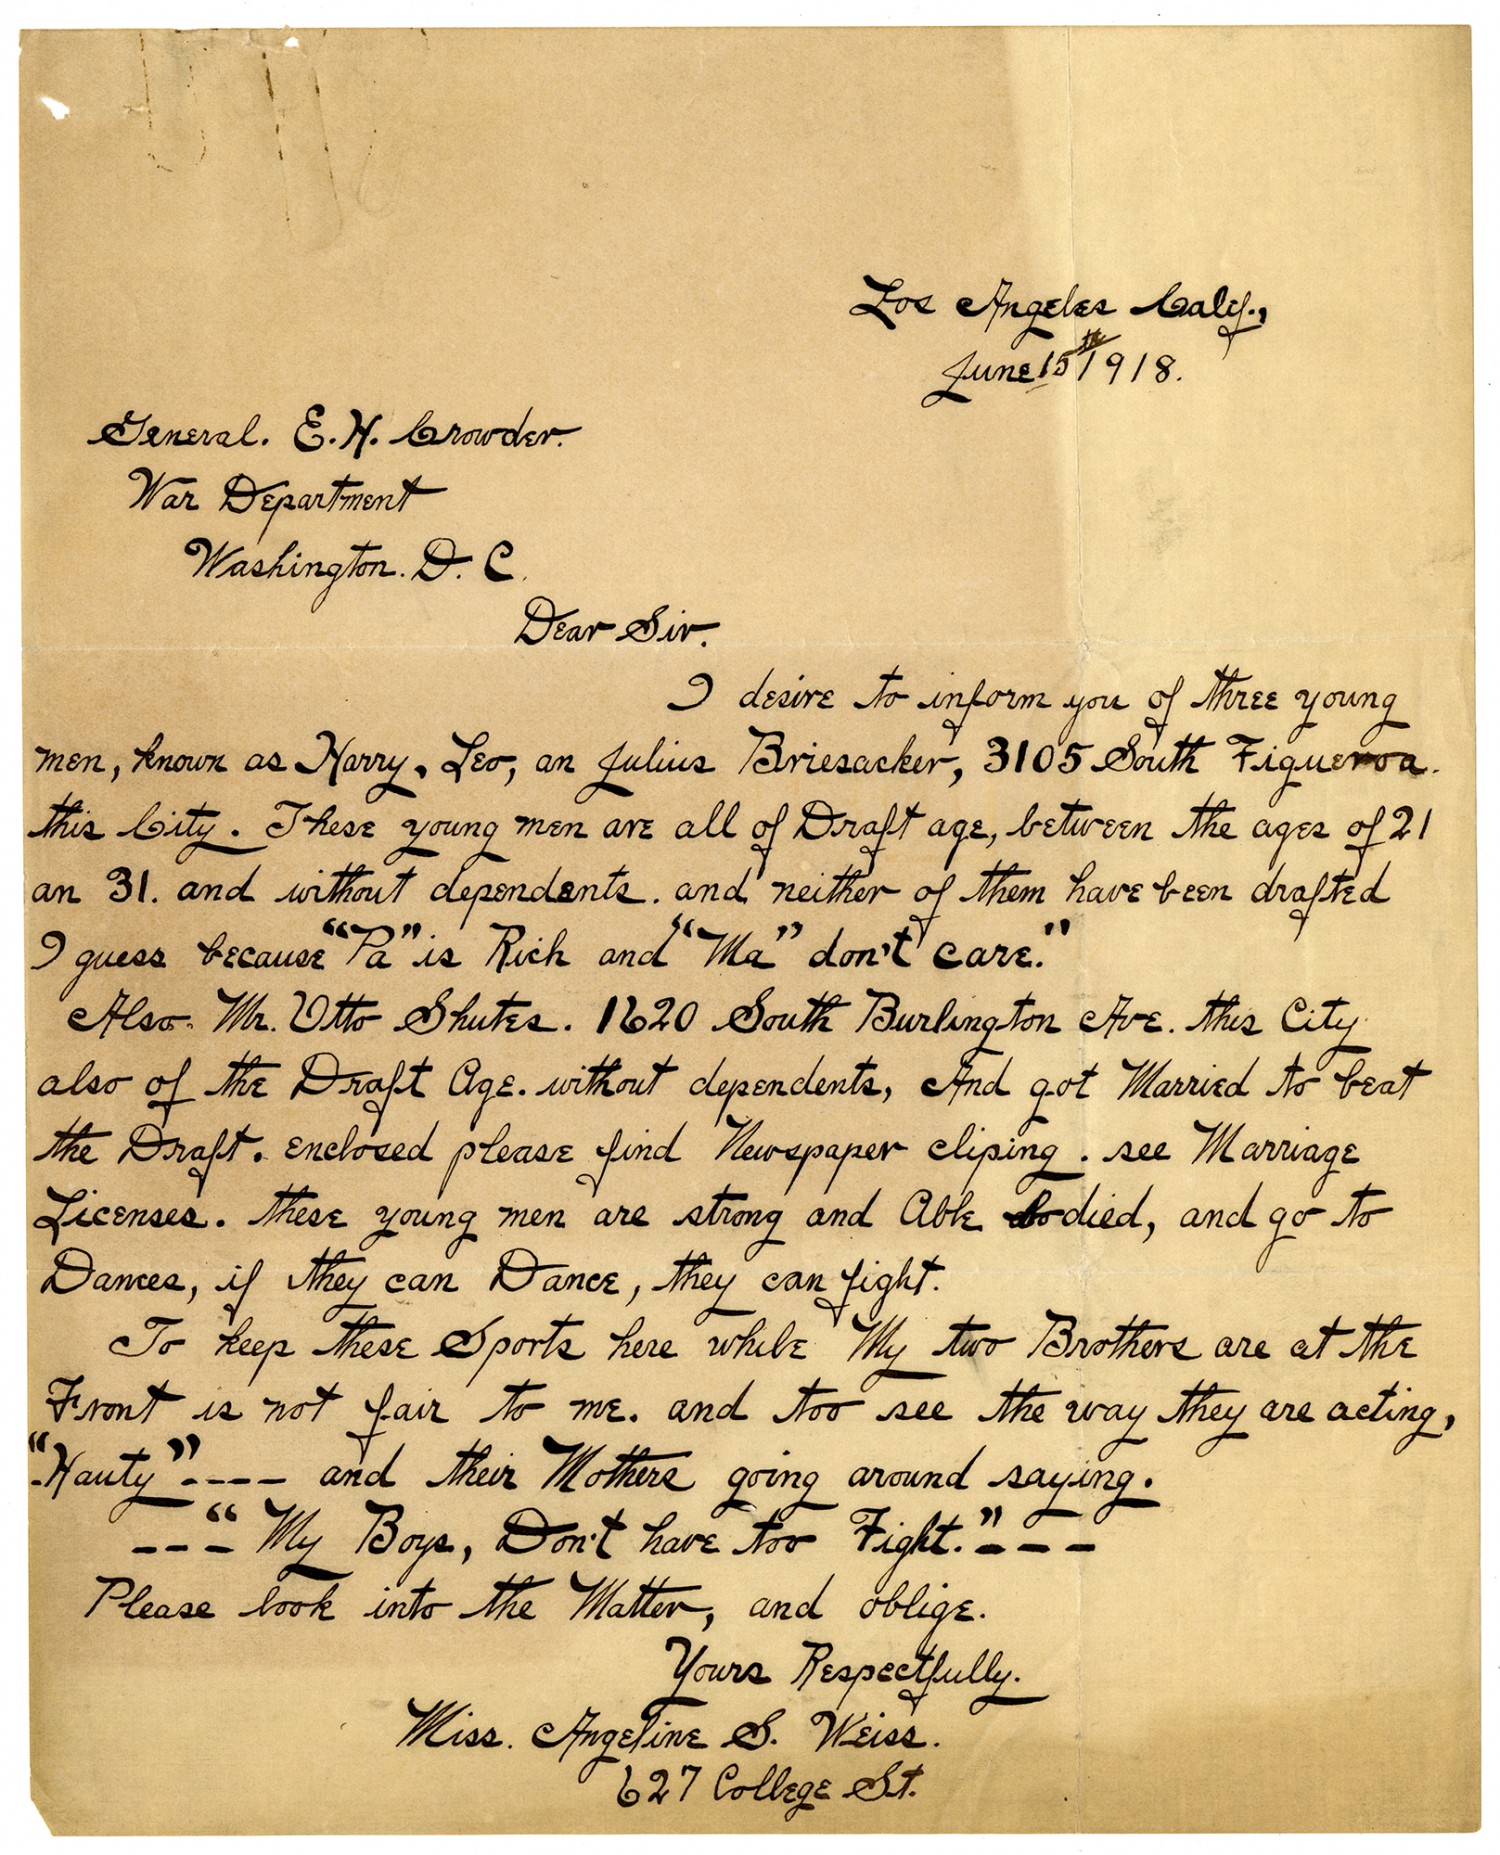 Los Angeles Calif.,
June 15th 1918.
General. E. H. Crowder.
War Department
Washington. D. C.
Dear Sir.
I desire to inform you of three young
men, known as Harry, Leo, an Julius Briesacker, 3105 South Figueroa.
this City. These young men are all of Draft age, between the ages of 21
an 31. and without dependents. and neither of them have been drafted
I guess because "Pa" is Rich and "Ma" don't care."
Also. Mr. Otto Shutes. 1620 South Burlington Ave. this City.
also of the Draft Age. without dependents, And got Married to beat
the Draft. enclosed please find Newspaper cliping. see Marriage
Licenses. these young men are strong and Able Bodied, and go to
Dances, if they can Dance, they can fight.
To keep these Sports here while My two Brothers are at the
Front is not fair to me. and too see the way they are acting,
"Hauty" ---- and their Mothers going around saying.
--- "My Boys, Don't have too Fight." ---
Please look into the Matter, and oblige.
Yours Respectfully.
Miss. Angeline S. Weiss.
627 College St.